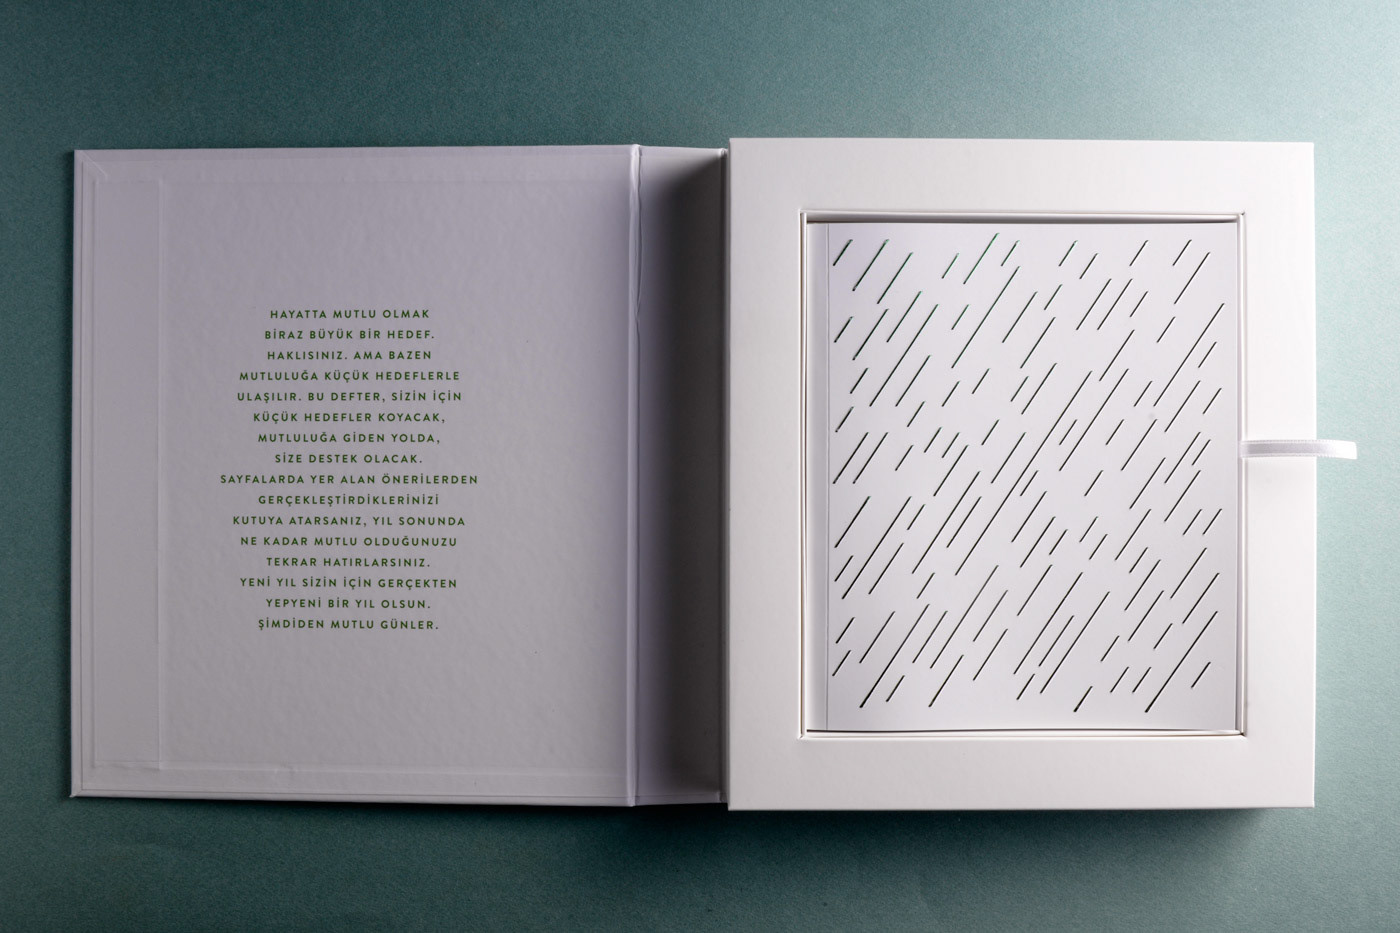 HAYATTA MUTLU OLMAK
BİRAZ BÜYÜK BİR HEDEF.
HAKLISINIZ. AMA BAZEN
MUTLULUĞA KÜÇÜK HEDEFLERLE
ULAŞILIR. BU DEFTER, SİZİN İÇİN
KÜÇÜK HEDEFLER KOYACAK,
MUTLULUĞA GİDEN YOLDA,
SİZE DESTEK OLACAK.
SAYFALARDA YER ALAN ÖNERİLERDEN
GERÇEKLEŞTİRDİKLERİNİZİ
KUTUYA ATARSANIZ, YIL SONUNDA
NE KADAR MUTLU OLDUĞUNUZU
TEKRAR HATIRLARSINIZ.
YENİ YIL SİZİN İÇİN GERÇEKTEN
YEPYENİ BİR YIL OLSUN.
ŞİMDİDEN MUTLU GÜNLER.